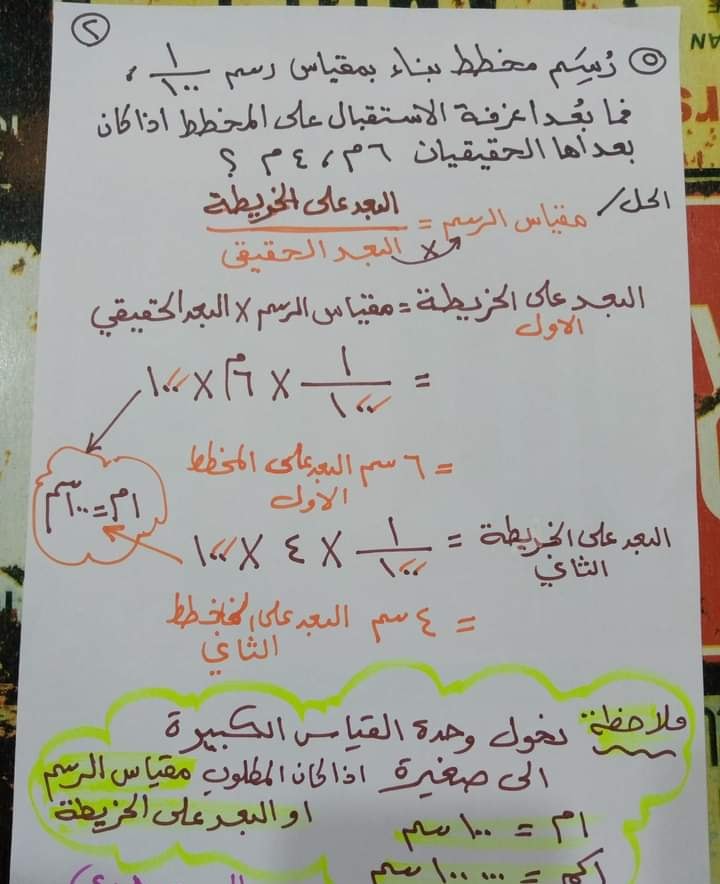 ٢
٥ رُسِم مخطط بناء بمقياس رسم ١/١٠٠ ،
فما بُعدا غرفة الاستقبال على المخطط اذا كان
بعداها الحقيقيان ٦م ، ٤م ؟
الحل/ مقياس الرسم = البعد على الخريطة / البعد الحقيقي
البعد على الخريطة = مقياس الرسم × البعد الحقيقي
الاول
= ١/١٠٠ × ٦م × ١٠٠
= ٦ سم البعد على المخطط
الاول
١م = ١٠٠سم
البعد على الخريطة = ١/١٠٠ × ٤ × ١٠٠
الثاني
= ٤ سم البعد على المخطط
الثاني
ملاحظة: نحول وحدة القياس الكبيرة
الى صغيرة اذا كان المطلوب مقياس الرسم
او البعد على الخريطة
١م = ١٠٠ سم
١كم = ١٠٠ ٠٠٠ سم